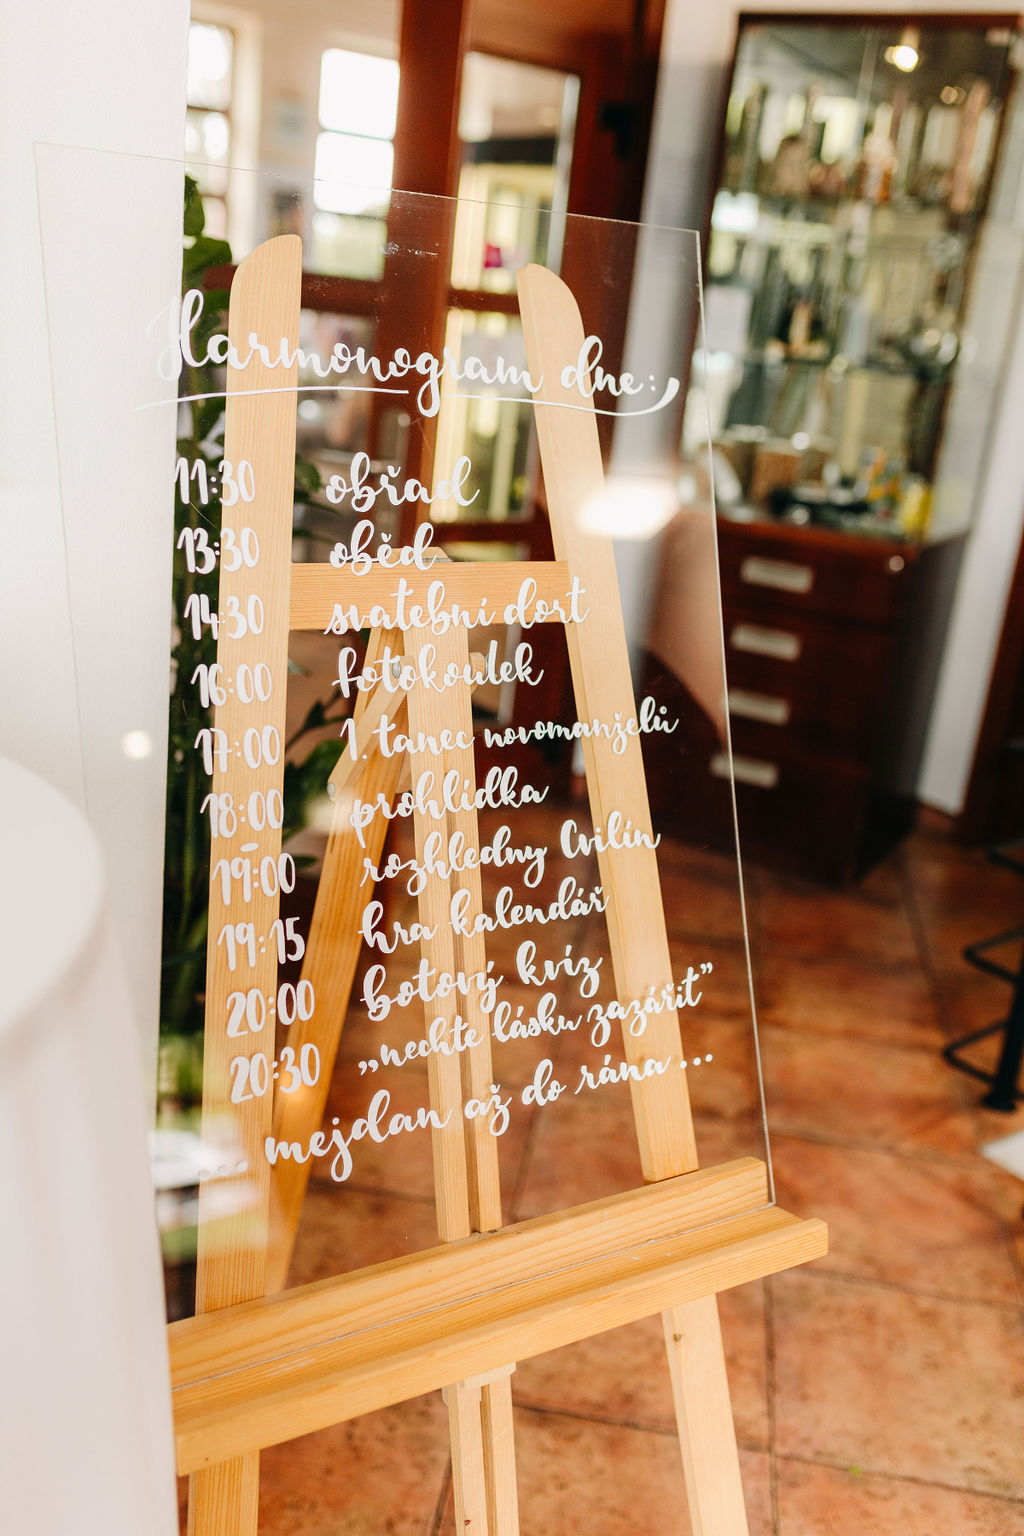 Harmonogram dne:
11:30 obřad
13:30 oběd
14:30 svatební dort
16:00 fotokoutek
17:00 1. tanec novomanželů
18:00 prohlídka
19:00 rozhledny Cvilín
19:15 hra kalendář
20:00 botový kvíz
20:30 „nechte lásku zazářit”
... mejdan až do rána ...